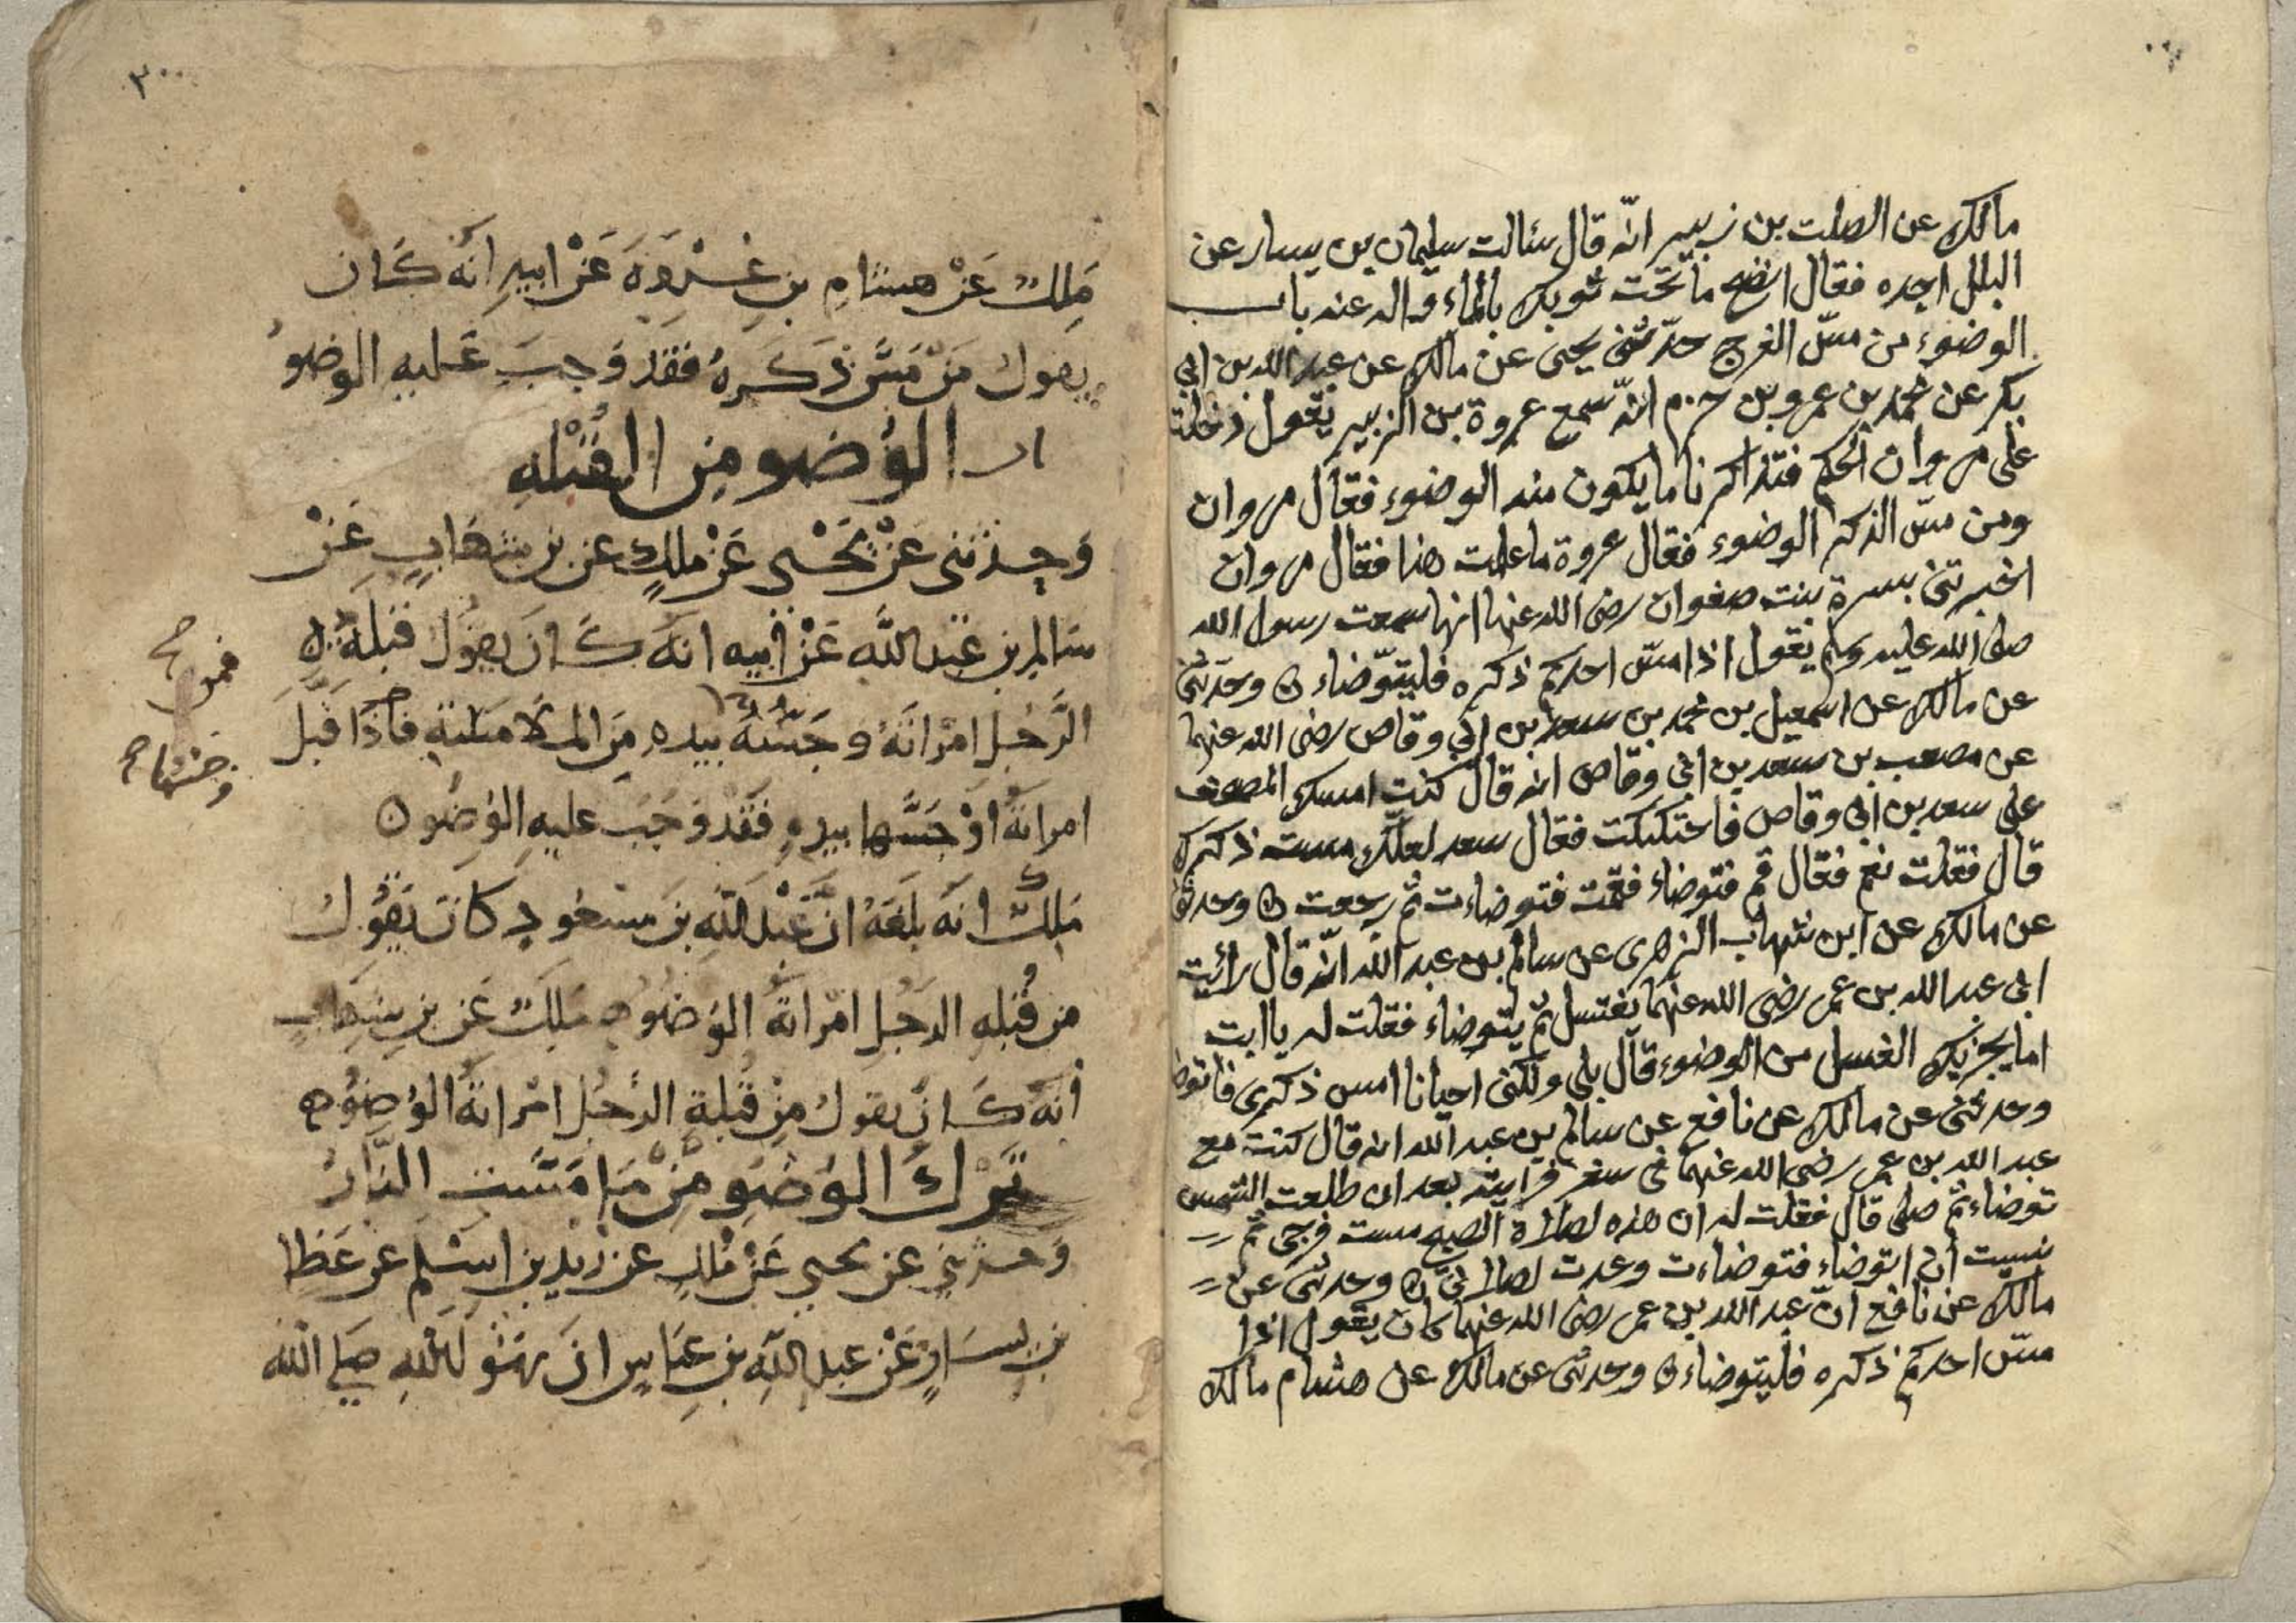 مالك عن الصلت بن زبيد انّه قال سئالت سليمان بن يسار عن
البلل اجده فقال انضح ما تحت ثوبك بالماء واله عنه باب
الوضوء من مسّ الفرج حدّثني يحيى عن مالك عن عبد الله بن ابي
بكر عن محمد بن عمرو بن حزم انّه سمع عروة بن الزبير يقول دخلت
على مروان الحكم فتذاكرنا ما يكون منه الوضوء فقال مروان
ومن مسّ الذكر الوضوء فقال عروة ما علمت هذا فقال مروان
اخبرتني بسرة بنت صفوان رضى الله عنها انها سمعت رسول الله
صلى الله عليه وسلم يقول اذا مسّ احدكم ذكره فليتوّضاء ن وحدّثني
عن مالك عن اسمعيل بن محمد بن سعد بن ابي وقاص رضى الله عنهما
عن مصعب بن سعد بن ابي وقاص انه قال كنت امسك المصحف
على سعد بن ابي وقاص فاحتككت فقال سعد لعلّك مسست ذكرك
قال فقلت نعم فقال قم فتوضاء فقمت فتوضاءت ثم رجعت ن وحدثني
عن مالك عن ابن شهاب الزهرى عن سالم بن عبد الله انّه قال رائيت
ابي عبد الله بن عمر رضى الله عنهما يغتسل ثم يتوضاء فقلت له يا ابت
اما يجزيك الغسل من الوضوء قال بلى ولكنى احيانا امس ذكرى فاتوضا
وحدثنى عن مالك عن نافع عن سالم بن عبد الله انه قال كنت مع
عبد الله بن عمر رضى الله عنهما في سفر فرايته بعد ان طلعت الشمس
توضاء ثم صلى قال فقلت له ان هذه لصلاة الصبح مسست فرجى ثم
نسيت ان اتوضاء فتوضاءت وعدت لصلاتي ن وحدثنى عن
مالك عن نافع انّ عبد الله بن عمر رضى الله عنهما كان يقول اذا
مسّ احدكم ذكره فليتوضاء ن وحدثنى عن مالك عن هشام مالك
٣٠٠
مَلِكٌ عَنْ هشامِ بنِ عُرْوَةَ عَنْ ابيهِ انَّه كَان
يقول مَنْ مَسَّ ذَكَرهُ فَقَدْ وَجبَ عَليهِ الوضوُ
الوُضو مِن القُبْلهِ
وَحدثني عَنْ يَحْيى عَنْ ملكٍ عن بن شهَابٍ عَنْ
سَالم بن عَبْد اللَّهِ عَنْ ابيهِ انَه كَانَ يقوُل قبْلَةُ
الرَّجُلِ امْرَاتَهُ وجَسُّهُ بيدهِ مِنَ المُلامَسَةِ فَاذَا قَبَّلَ
امراتَهُ اوْ جَسَّها بيدهِ فَقَدْ وَجَبَ عليهِ الوُضُو ن
مَلِكٌ انَه بلَغَهُ انَّ عَبْدَ اللَّهِ بنَ مسْعُودٍ كَانَ يَقُولُ
من قُبْلهِ الرجُلِ امْرَاتَهُ الوُضُو ه مَلِكٌ عَن بنِ شِهَابٍ
انَّهُ كَانَ يقولُ مِنْ قُبلةِ الرَّجُلِ امْرَاتَهُ الوُضوُ ه
تَرْكُ الوُضُو مِنْ مَا مَسَّتِ النَّارُ
وَحدثنِي عن يحيى عَنْ مَلكٍ عن زيدِ بنِ اسْلَم عن عَطا
بن يسَارٍ عَنْ عبدِ اللَّهِ بن عبَاسٍ انَ رسُولَ اللَّهِ صَلى اللهُ